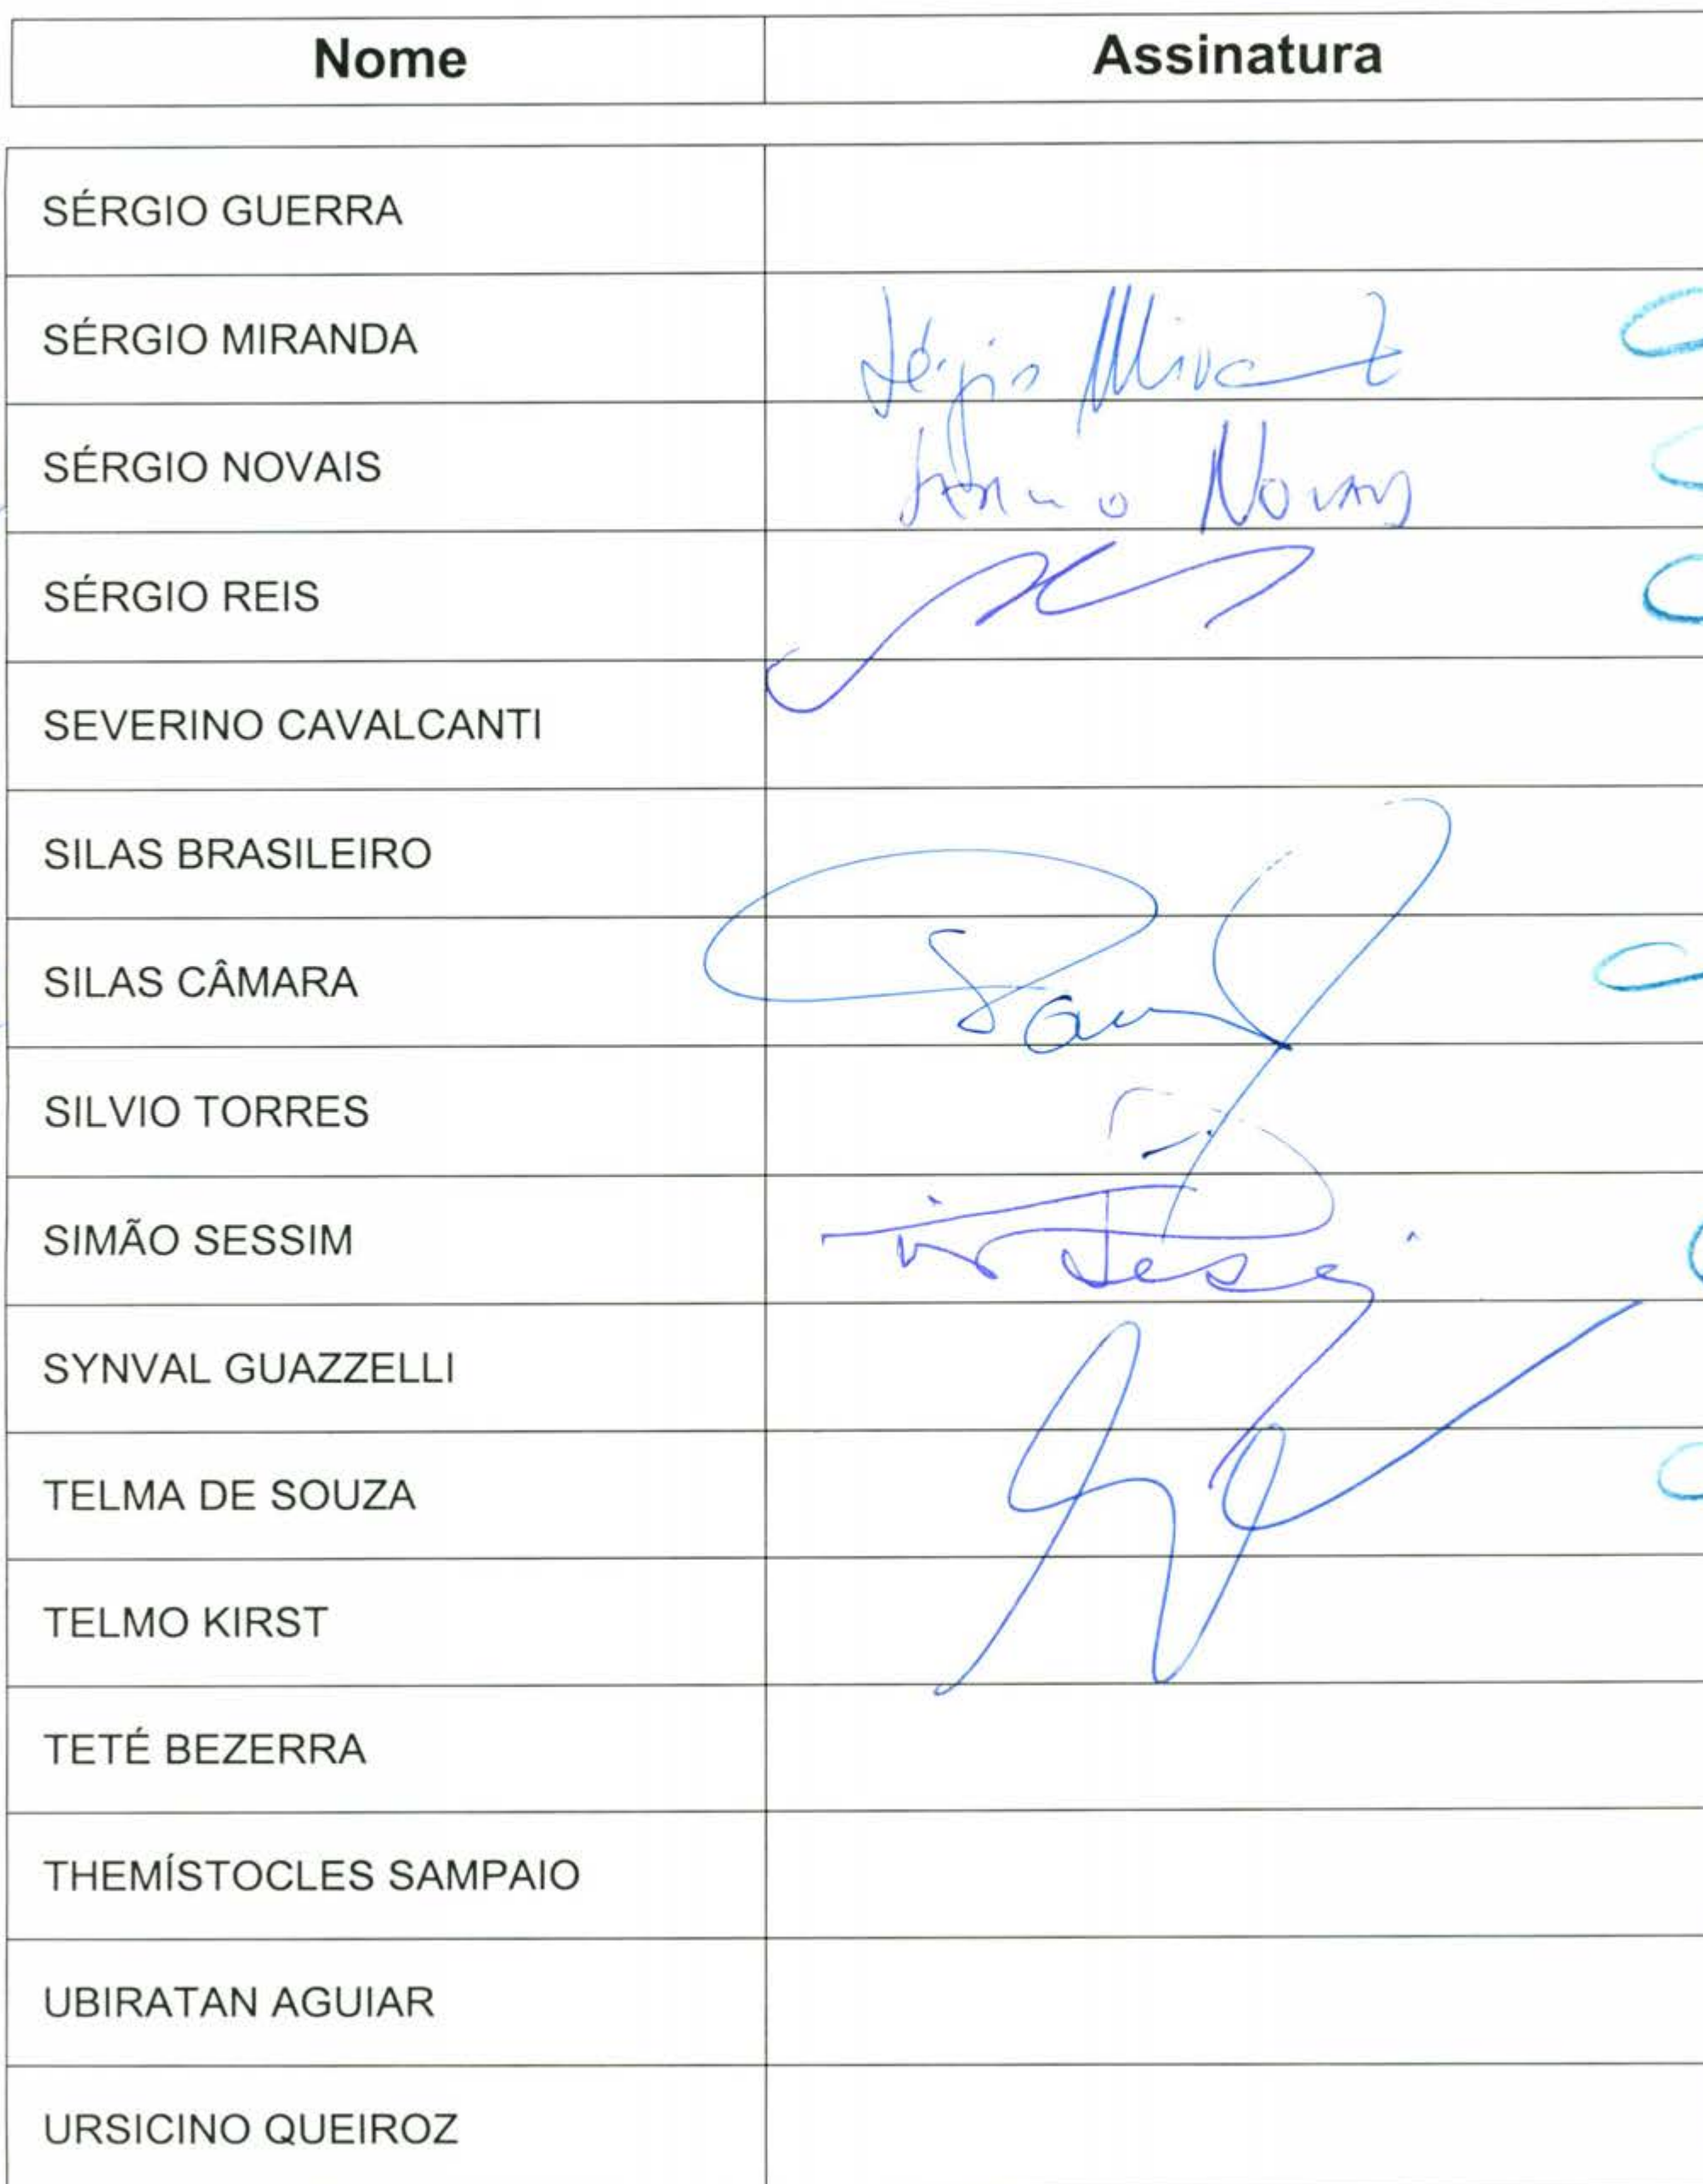 Nome Assinatura
SÉRGIO GUERRA
SÉRGIO MIRANDA Sérgio Miranda
SÉRGIO NOVAIS Sérgio Novais
SÉRGIO REIS
SEVERINO CAVALCANTI
SILAS BRASILEIRO
SILAS CÂMARA
SILVIO TORRES
SIMÃO SESSIM
SYNVAL GUAZZELLI
TELMA DE SOUZA
TELMO KIRST
TETÉ BEZERRA
THEMÍSTOCLES SAMPAIO
UBIRATAN AGUIAR
URSICINO QUEIROZ